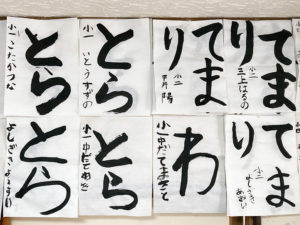 てまり
小二 三上はるの
てまり
小二
とら
小一 いとうすずの
とら
小一
てまり
小二 よしざき
わ
小一 中だてまさと
とら
小一 中だて
とら
よしざき